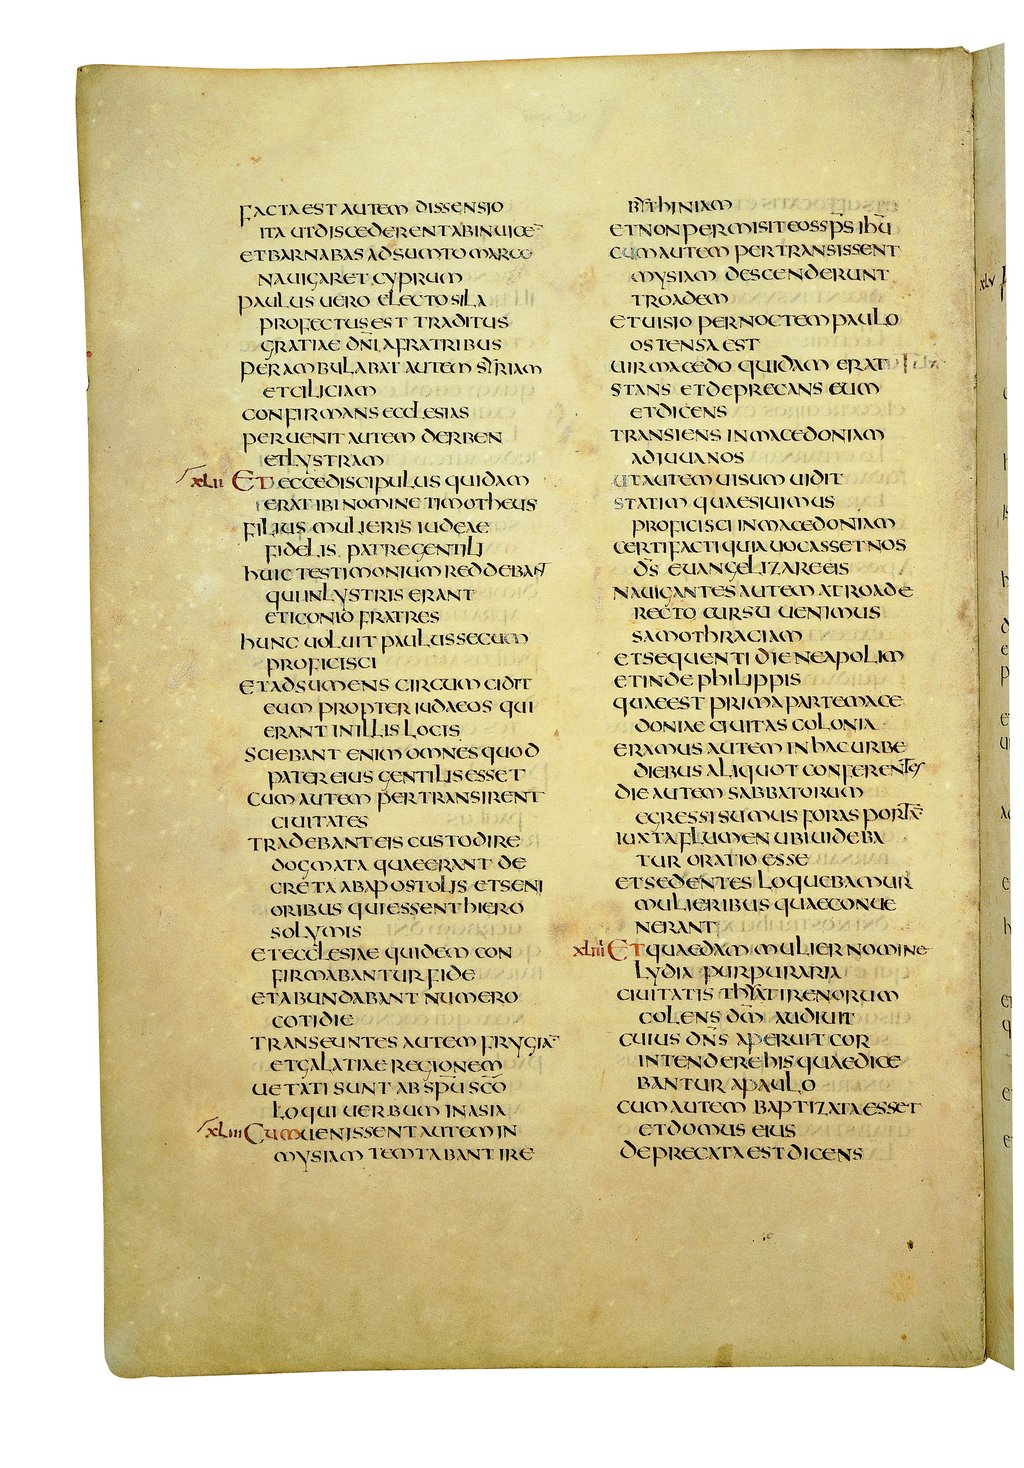 FACTA EST AUTEM DISSENSIO
ITA UT DISCEDERENT AB INUICE̅
ET BARNABAS ADSUMTO MARCO
NAUIGARET CYPRUM
PAULUS UERO ELECTO SILA
PROFECTUS EST TRADITUS
GRATIAE DN̅I A FRATRIBUS
PERAMBULABAT AUTEM SYRIAM
ET CILICIAM
CONFIRMANS ECCLESIAS
PERUENIT AUTEM DERBEN
ET LYSTRAM
XLII ET ECCE DISCIPULUS QUIDAM
ERAT IBI NOMINE TIMOTHEUS
FILIUS MULIERIS IUDEAE
FIDELIS PATRE GENTILI
HUIC TESTIMONIUM REDDEBANT
QUI IN LYSTRIS ERANT
ET ICONIO FRATRES
HUNC UOLUIT PAULUS SECUM
PROFICISCI
ET ADSUMENS CIRCUMCIDIT
EUM PROPTER IUDAEOS QUI
ERANT IN ILLIS LOCIS
SCIEBANT ENIM OMNES QUOD
PATER EIUS GENTILIS ESSET
CUM AUTEM PERTRANSIRENT
CIUITATES
TRADEBANT EIS CUSTODIRE
DOGMATA QUAE ERANT DE
CRETA AB APOSTOLIS ET SENI
ORIBUS QUI ESSENT HIERO
SOLYMIS
ET ECCLESIAE QUIDEM CON
FIRMABANTUR FIDE
ET ABUNDABANT NUMERO
COTIDIE
TRANSEUNTES AUTEM FRYGIA̅
ET GALATIAE REGIONEM
UETATI SUNT AB SP̅U SC̅O
LOQUI UERBUM IN ASIA
XLIII CUM UENISSENT AUTEM IN
MYSIAM TEMTABANT IRE
BITHINIAM
ET NON PERMISIT EOS SP̅S IHU̅
CUM AUTEM PERTRANSISSENT
MYSIAM DESCENDERUNT
TROADEM
ET UISIO PER NOCTEM PAULO
OSTENSA EST
UIR MACEDO QUIDAM ERAT
STANS ET DEPRECANS EUM
ET DICENS
TRANSIENS IN MACEDONIAM
ADIUUA NOS
UT AUTEM UISUM UIDIT
STATIM QUAESIUIMUS
PROFICISCI IN MACEDONIAM
CERTI FACTI QUIA UOCASSET NOS
DS̅ EUANGELIZARE EIS
NAUIGANTES AUTEM A TROADE
RECTO CURSU UENIMUS
SAMOTHRACIAM
ET SEQUENTI DIE NEAPOLIM
ET INDE PHILIPPIS
QUAE EST PRIMA PARTE MACE
DONIAE CIUITAS COLONIA
ERAMUS AUTEM IN HAC URBE
DIEBUS ALIQUOT CONFERENTES
DIE AUTEM SABBATORUM
EGRESSI SUMUS FORAS PORTA̅
IUXTA FLUMEN UBI UIDEBA
TUR ORATIO ESSE
ET SEDENTES LOQUEBAMUR
MULIERIBUS QUAE CONUE
NERANT
XLIIII ET QUAEDAM MULIER NOMINE
LYDIA PURPURARIA
CIUITATIS THYATIRENORUM
COLENS DM̅ AUDIUIT
CUIUS DN̅S APERUIT COR
INTENDERE HIS QUAE DICE
BANTUR A PAULO
CUM AUTEM BAPTIZATA ESSET
ET DOMUS EIUS
DEPRECATA EST DICENS
XLV